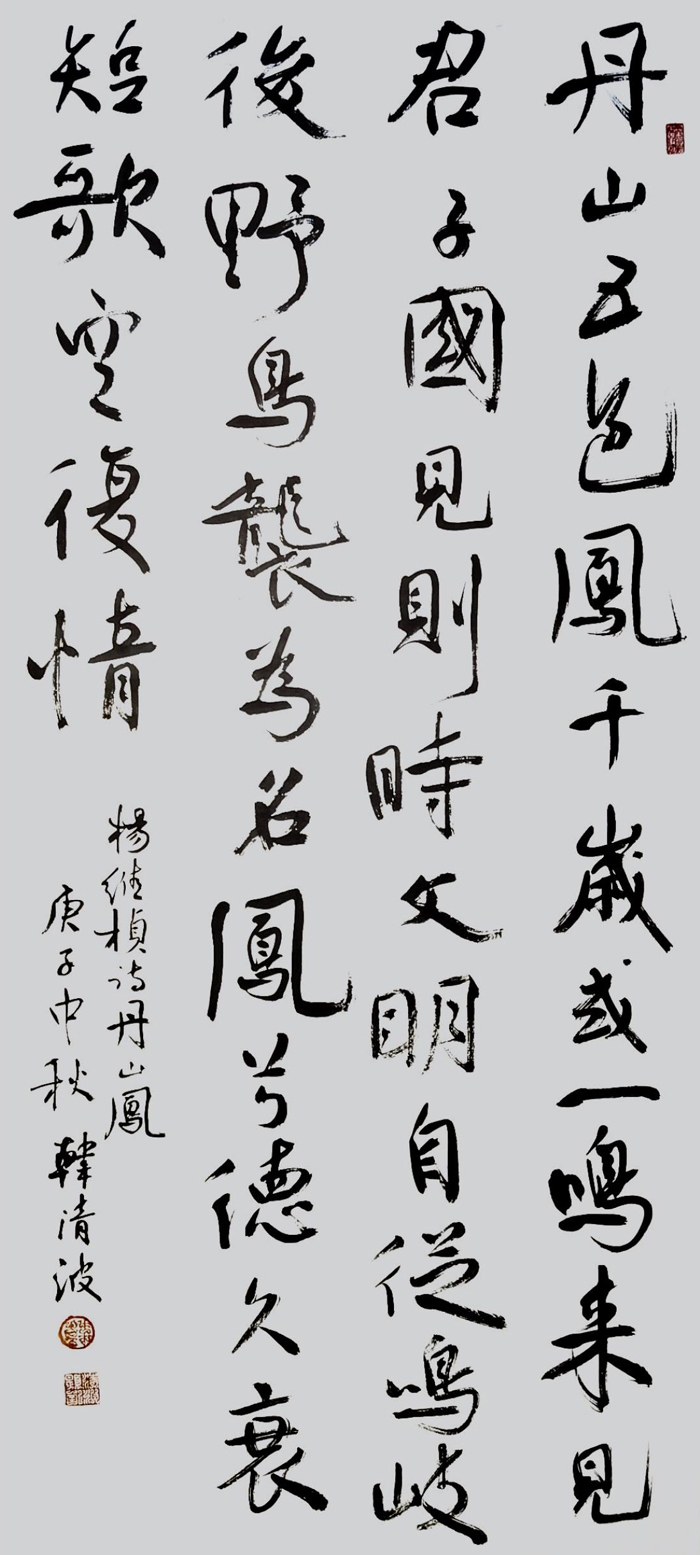 丹山五色鳳千歲或一鳴来見
君子國見則時文明自從鳴岐
後野鳥襲為名鳳兮德久衰
短歌空復情
楊維楨詩丹山鳳
庚子中秋 韓清波